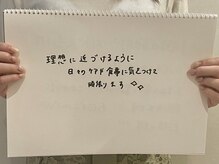 理想に近づけるように
日々のケアや食事に気をつけて
頑張ります